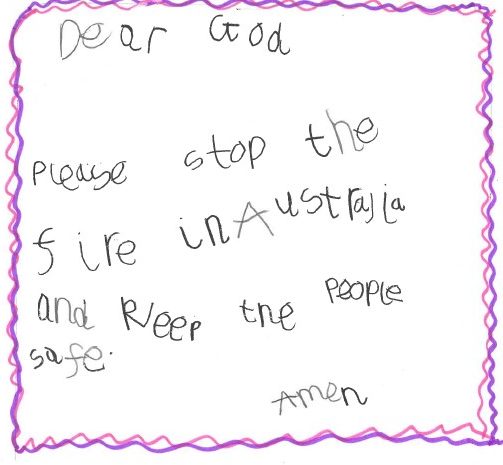 Dear God
Please stop the
fire in Australia
and Keep the People
safe.
Amen